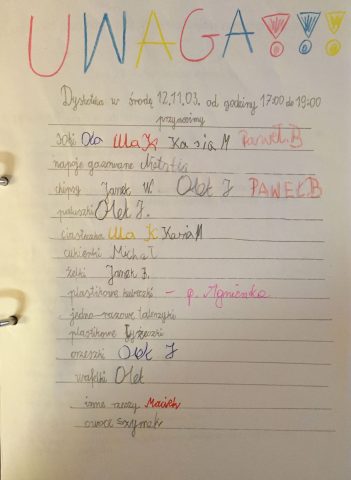 UWAGA!!!
Dyskoteka w środę 12.11.03. od godziny 17:00 do 19:00
przynosimy
soki Ola Ula K Kasia M Paweł.B
napoje gazowane
chipsy Janek W. Olek J PAWEŁ.B
paluszki Olek J.
ciastka Ula K Kasia M
cukierki Michał
żelki Janek
plastikowe kubeczki - p. Agnieszka
jedno-razowe talerzyki
plastikowe łyżeczki
orzeszki Olek J
wafelki Olek
inne rzeczy Maciek
owoce szymek